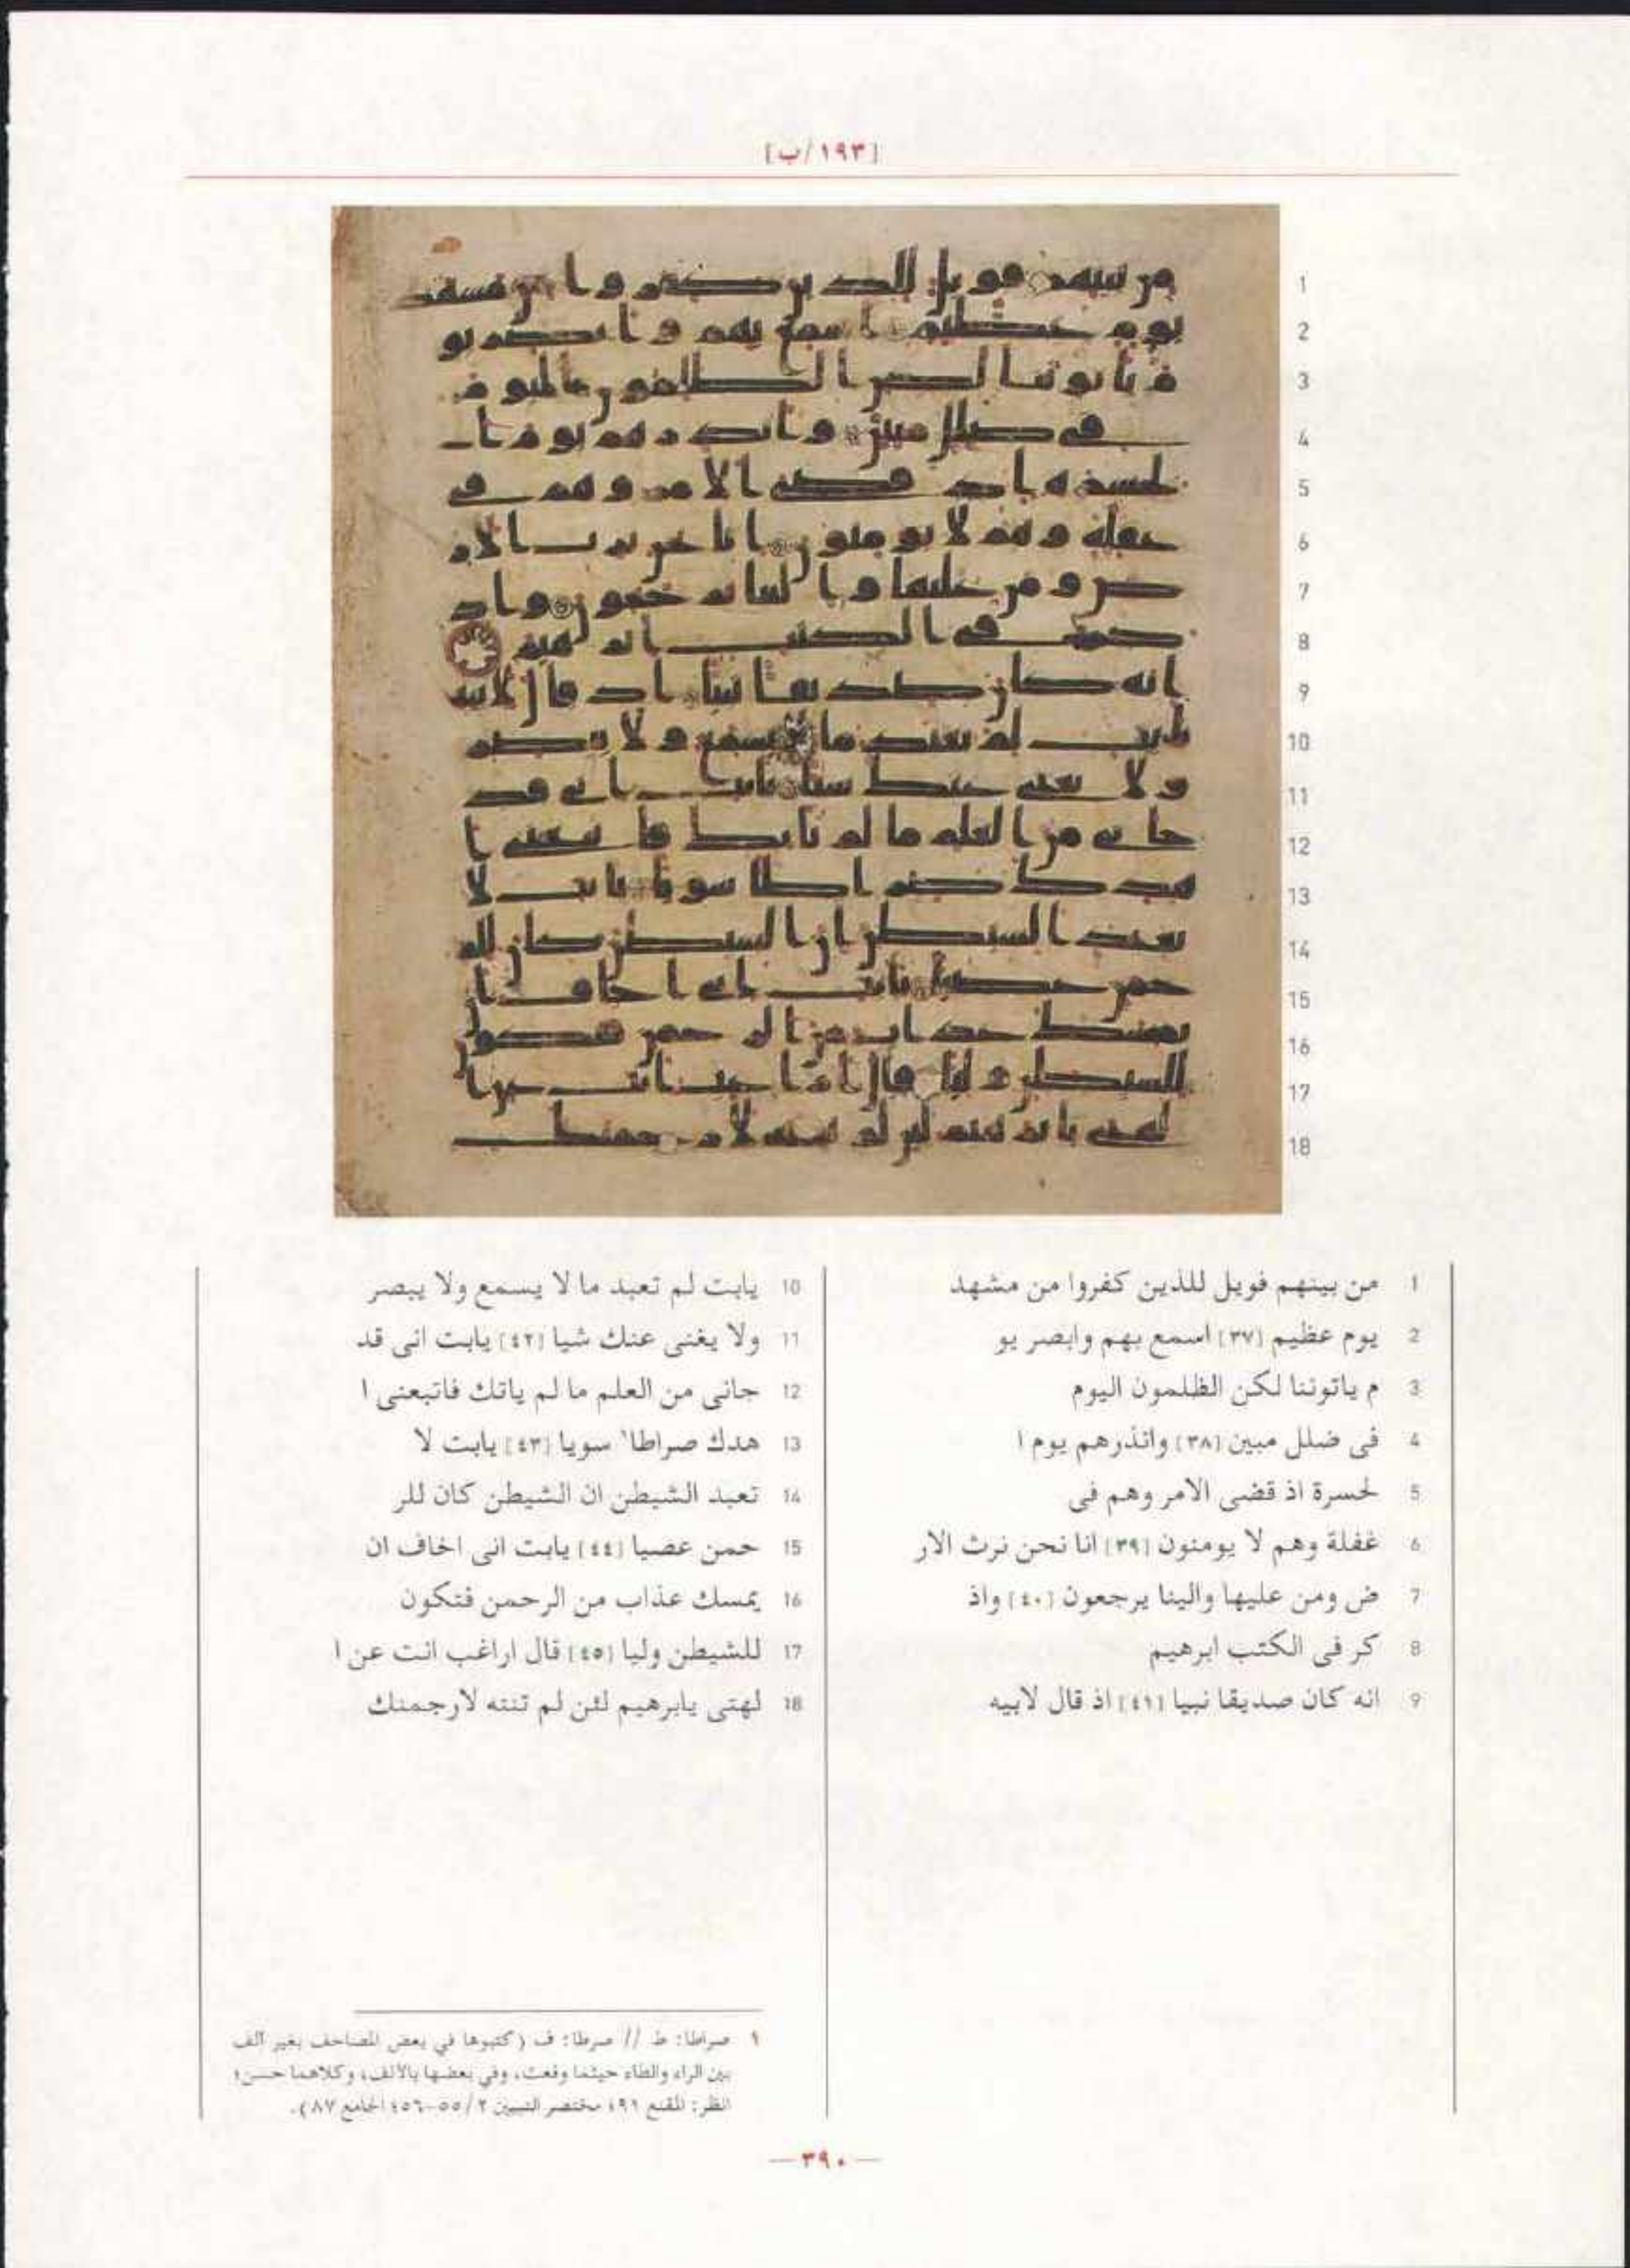 [١٩٣/ب]
1 من بينهم فويل للذين كفروا من مشهد
2 يوم عظيم [٣٧] اسمع بهم وابصر يو
3 م ياتوننا لكن الظلمون اليوم
4 فى ضلل مبين [٣٨] وانذرهم يوم ا
5 لحسرة اذ قضى الامر وهم فى
6 غفلة وهم لا يومنون [٣٩] انا نحن نرث الار
7 ض ومن عليها والينا يرجعون [٤٠] واذ
8 كر فى الكتب ابرهيم
9 انه كان صديقا نبيا [٤١] اذ قال لابيه
10 يابت لم تعبد ما لا يسمع ولا يبصر
11 ولا يغنى عنك شيا [٤٢] يابت انى قد
12 جانى من العلم ما لم ياتك فاتبعنى ا
13 هدك صراطا١ سويا [٤٣] يابت لا
14 تعبد الشيطن ان الشيطن كان للر
15 حمن عصيا [٤٤] يابت انى اخاف ان
16 يمسك عذاب من الرحمن فتكون
17 للشيطن وليا [٤٥] قال اراغب انت عن ا
18 لهتى يابرهيم لئن لم تنته لارجمنك
١ صراطا: ط // صرطا: ف (كتبوها في بعض المصاحف بغير ألف
بين الراء والطاء حيثما وقعت، وفي بعضها بالألف، وكلاهما حسن؛
انظر: المقنع ٩١؛ مختصر التبيين ٢/ ٥٥-٥٦؛ الجامع ٨٧).
— ٣٩٠ —